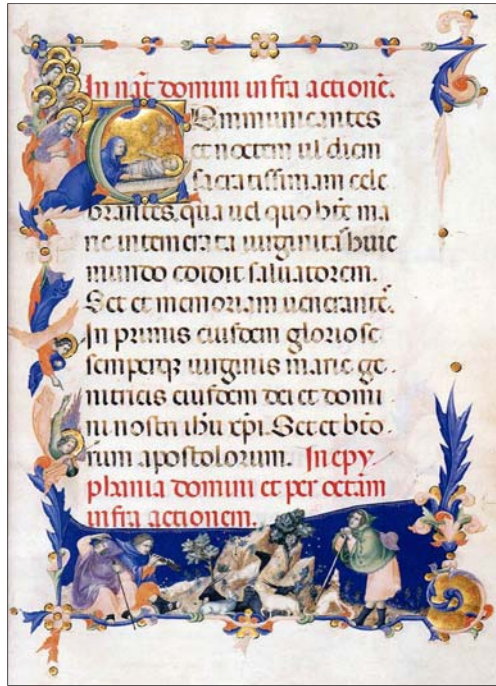 In nat̄ domini infra actionē.
Communicantes
et noctem ul diem
sacratissimam cele
brantes, qua uel quo bt̄e ma
rie intemerata uirginitas huic
mundo edidit saluatorem.
Set et memoriam uenerant̄.
In primis eiusdem gloriose
semperqȝ uirginis marie ge-
nitricis eiusdem dei et domi-
ni nostri ihu xp̄i. Set et bt̄o-
rum apostolorum. In epy-
phania domini et per octām
infra actionem.